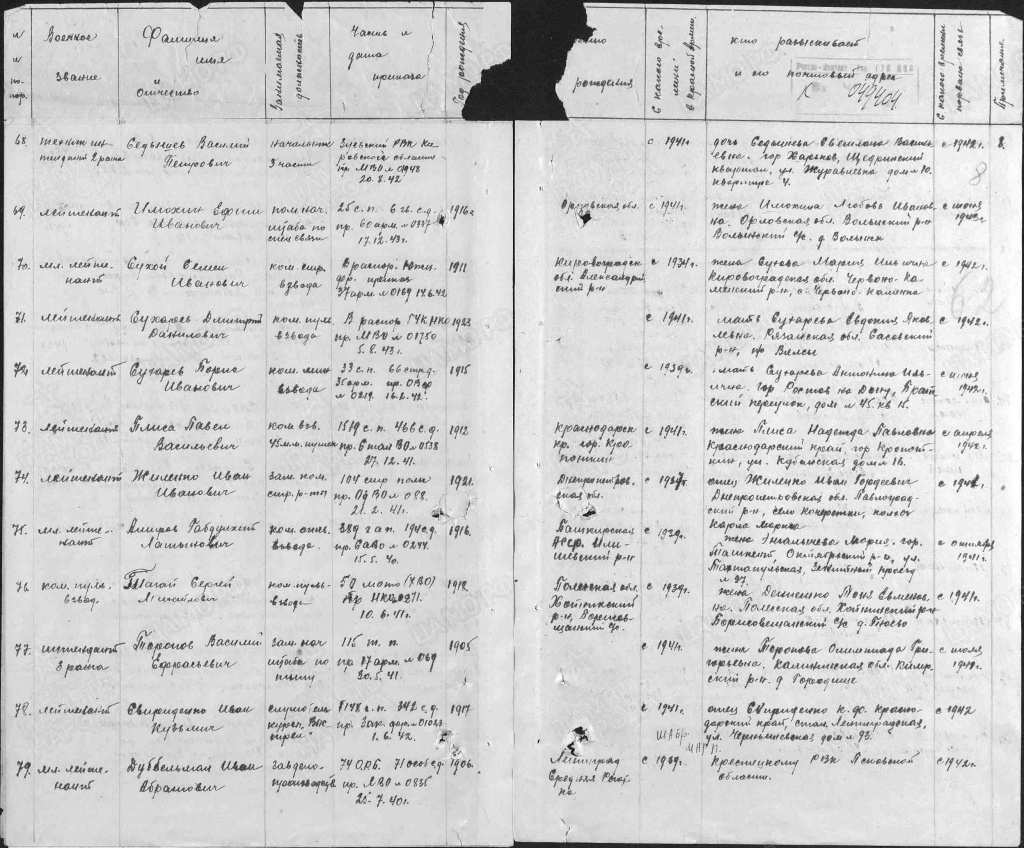 Военное звание
Фамилия имя и отчество
Занимаемая должность
Часть и дата приказа
Год рождения
рождения
С какого времени в красной армии
кто разыскивает и его почтовый адрес
К 049404
С какого времени порвана связь
Примечание
68. техник ин-
тендант 2 ранга
Василий
Петрович
начальник
3 части
Зуевский РВК Ки-
ровской области
пр МВО № 0143
20.8.42
с 1941г
дочь Светлана Василь
евна. гор Харьков, Щедринский
ул. Журавлевка дом № 10.
квартира 4.
с 1942г.
8.
8
69. лейтенант
Илюхин Ефим
Иванович
пом нач.
штаба по
спец связи
25 с.п. 6 гв. с.д.
пр. 60 арм № 0337
17.12.43г.
1916г
Орловская обл.
с 1941г.
жена Илюхина Любовь Иванов
на. Орловская обл. Волынский р-н
Волынский с/с. д. Волынск
с июня
1943г
70. мл. лейте-
нант
Сухой Семен
Иванович
ком. стр.
взвода
В распор. Южн.
фр. приказ
37 арм. № 0169 14.6.42
1911
Кировоградск
обл. Александрий
ский р-н
с 1934г
жена Сухова Мария Ильинична
Кировоградская обл. Червоно-Ка-
менский р-н, с. Червоно-Каменка
с 1942г.
71. лейтенант
Сухарев Дмитрий
Данилович
ком. пул.
взвода
В распор ГУК НКО
пр. МВО № 01750
5.8.43г.
1923
с 1941г.
мать Сухарева Евдокия Яков
левна. Рязанская обл. Сасовский
р-н, п/о Вялсы
с 1942г.
72. лейтенант
Сухарев Борис
Иванович
ком. мин
взвода
33 с.п. 66 стр.д.
35 арм. пр. ДВфр
№ 0219. 16.2.42.
1915
с 1939г.
мать Сухарева Антонина Иль-
инична. гор Ростов на Дону, Брат-
ский переулок, дом № 45. кв 15.
с июля
1942г.
73. лейтенант
Плиса Павел
Васильевич
ком взв.
45 м.м. пушек
1519 с.п. 466 с.д.
пр. № 0538
27.12.41.
1912
Краснодарск
кр. гор. Кро
поткин
с 1941г.
жена Плиса Надежда Павловна
Краснодарский край, гор Кропот-
кин, ул. Кубанская дом № 16.
с апреля
1942г.
74. лейтенант
Жиленко Иван
Иванович
зам. ком.
стр. р-ты
104 стр полк
пр. ОдВО № 088.
21.2.41.
1921.
Днепропетров-
ская обл.
с 1937г.
отец Жиленко Иван Гордеевич
Днепропетровская обл. Павлоград-
ский р-н, село Кочережки, колхоз
Карла Маркса
с 1941г.
75. мл. лейте-
нант
Амиров
ком. отд.
взвода.
289 г ап. 194 с.д.
пр. СаВО № 0244.
15.5.40.
1916.
Башкирская
АССР. Или-
шевский р-н
с 1939г.
жена Мария. гор.
Ташкент, Октябрьский р-н, ул.
Зенитный проезд
№ 37.
с октября
1941г.
76. ком. пуль.
взвод.
Тагай Сергей
Михайлович
ком. пуль-
взвода
50 мото (ХВО)
пр НКО № 0371.
10.6.41г.
1918.
Полесская обл.
Хойникский
р-н, Борисов-
щанский с/с.
с 1939г
жена Демиенко Евменов
на. Полесская обл. Хойникский р-н
Борисовщанский с/с
с 1941г.
77. интендант
3 ранга
Торопов Василий
Ефграсьевич
зам. нач
штаба по
тылу
115 т. п.
пр 17 арм. № 069
30.5.41.
1905
с 1941г.
жена Торопова Олимпиада Гри
горьевна. Калининская обл. Кимр-
ский р-н. д Городище
с июля
1941г.
78. лейтенант
Свириденко Иван
Кузьмич
слушатель
курсов „Вы-
стрел"
1178 с.п. 342 с.д.
пр. Зак. фр. № 01023
1.6.42.
1917
с 1941г.
отец Свириденко К.Ф. Красно-
дарский край, стан. Ленинградская,
ул. Чернышевская дом № 93.
с 1942
79. мл. лейте-
нант
Дуббельман Иван
Абрамович
завдело-
производств
74 О.р.б. 71 особ с.д.
пр. МВО № 0835
25.7.40г.
1906.
Ленинград
Средняя Рогат-
ка
с 1939г.
Крестецкому РВК Псковской
области.
с 1942г.